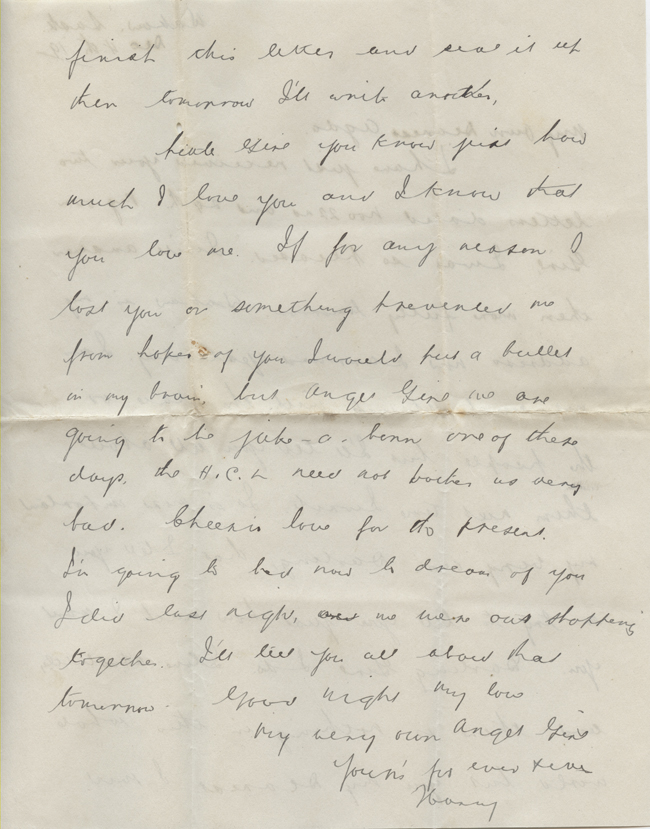 finish this letter and seal it up
then tomorrow I'll write another,
Little Girl you know just how
much I love you and I know that
you love me. If for any reason I
lost you or something prevented me
from hopes of you I would put a bullet
in my brain, but Angel Girl we are
going to be jake-a-loo one of these
days, the H.C.L need not bother us very
bad. Cheerio love for the present.
I'm going to bed now to dream of you
I did last night, and we were out shopping
together. I'll tell you all about that
tomorrow. Good night my love
My very own Angel Girl
Yours for ever & ever
Harry